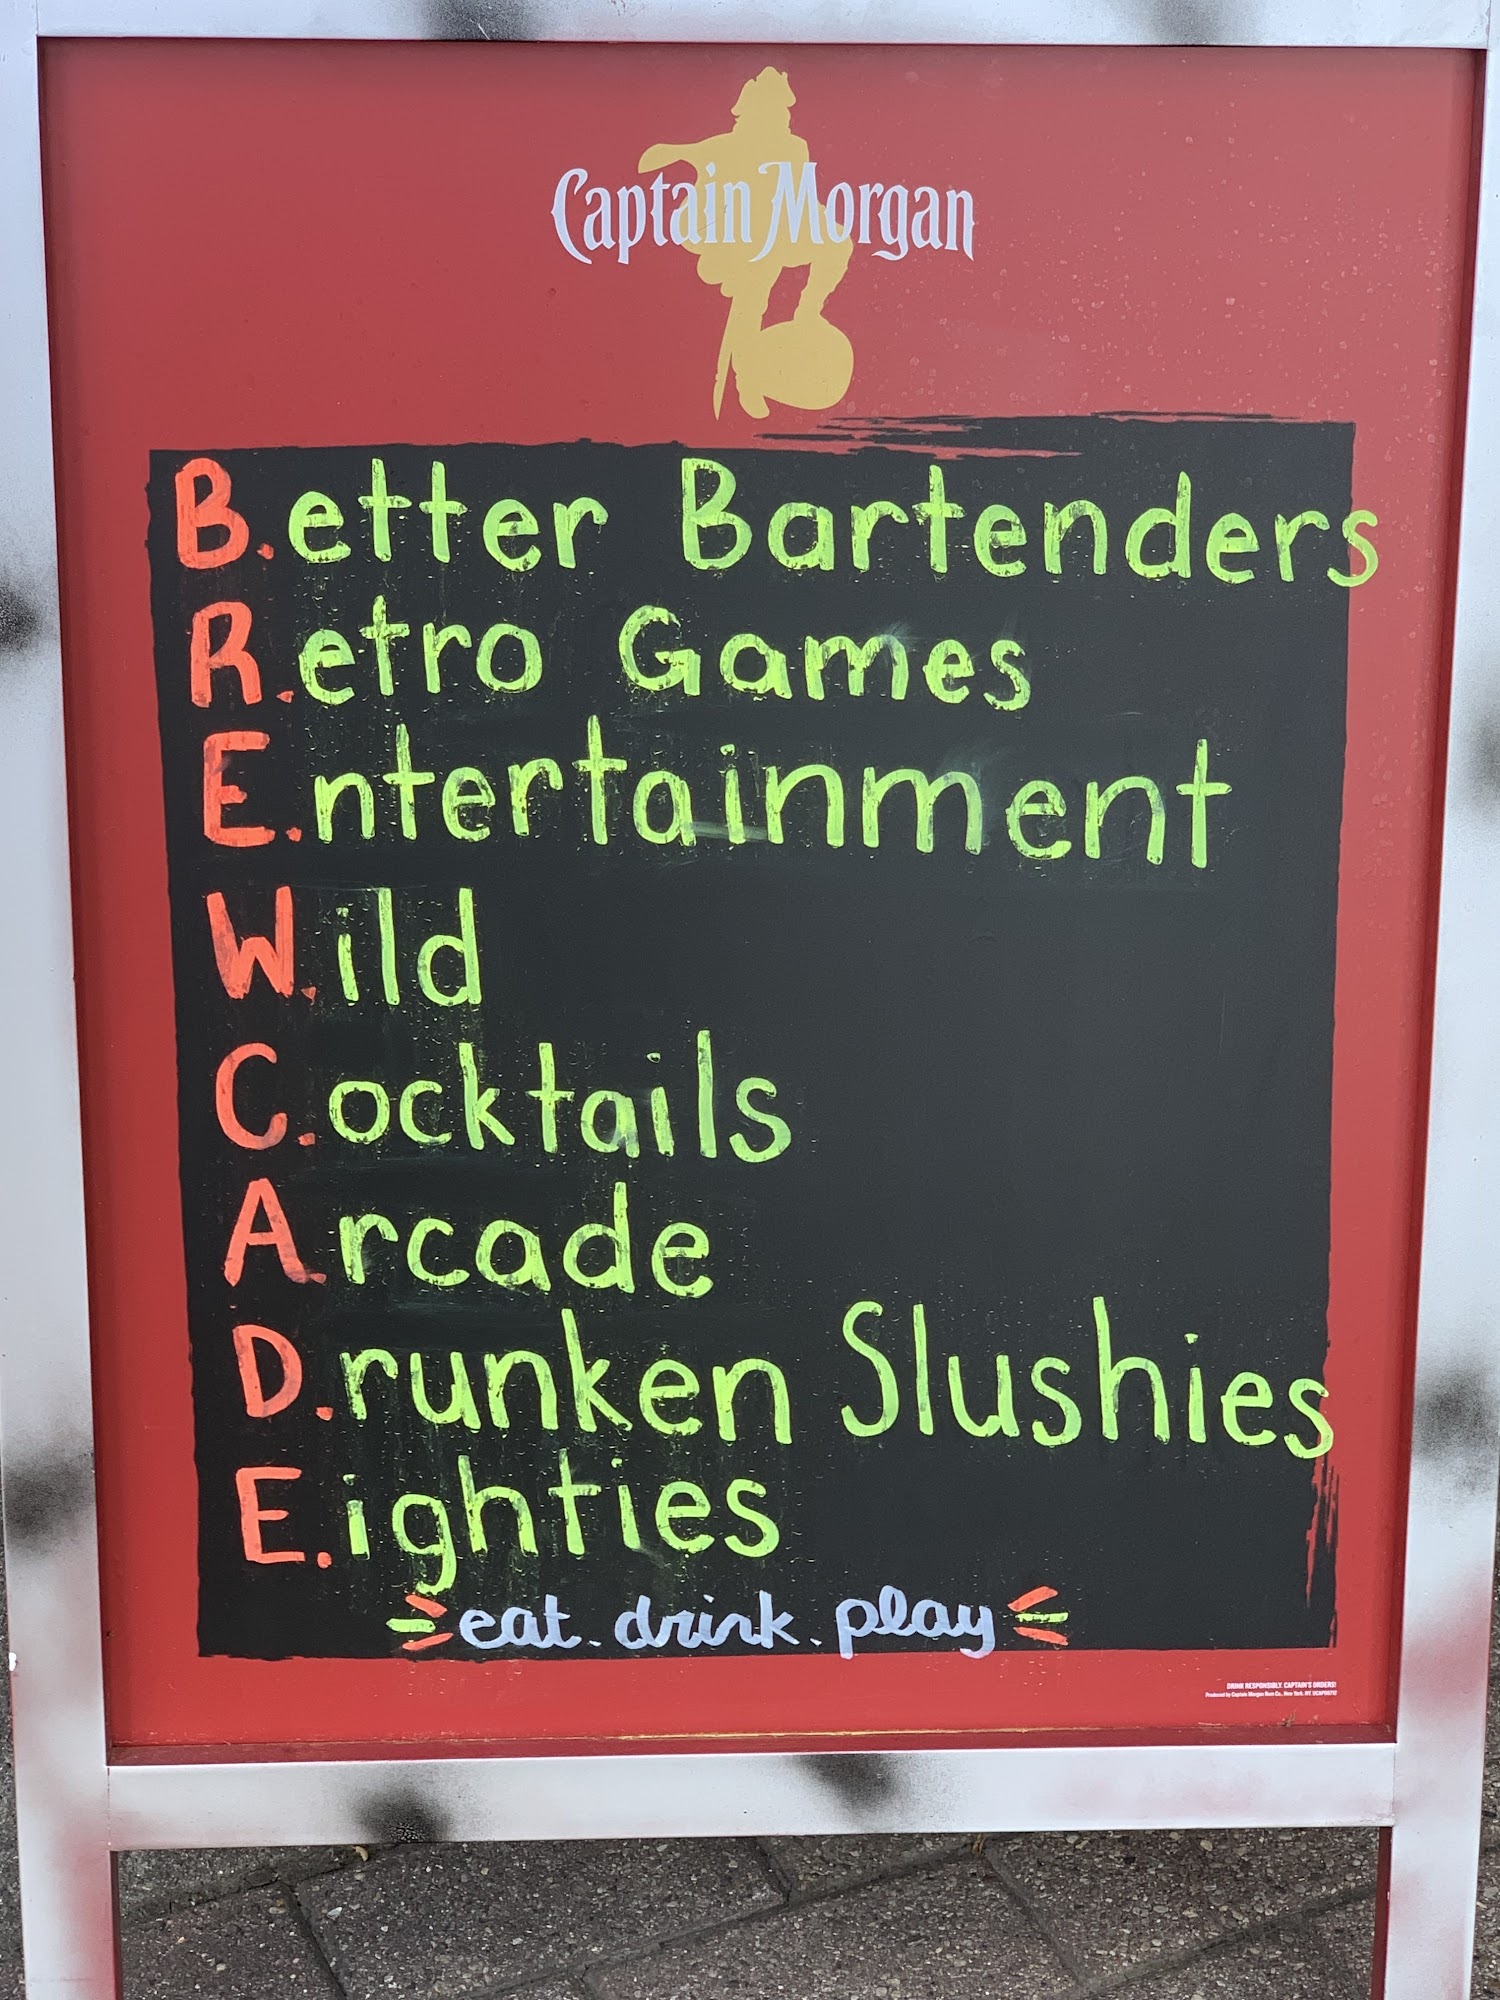 Captain Morgan
B.etter Bartenders
R.etro Games
E.ntertainment
W.ild
C.ocktails
A.rcade
D.runken Slushies
E.ighties
eat. drink. play
DRINK RESPONSIBLY. CAPTAIN'S ORDERS!
Produced by Captain Morgan Rum Co., New York, NY